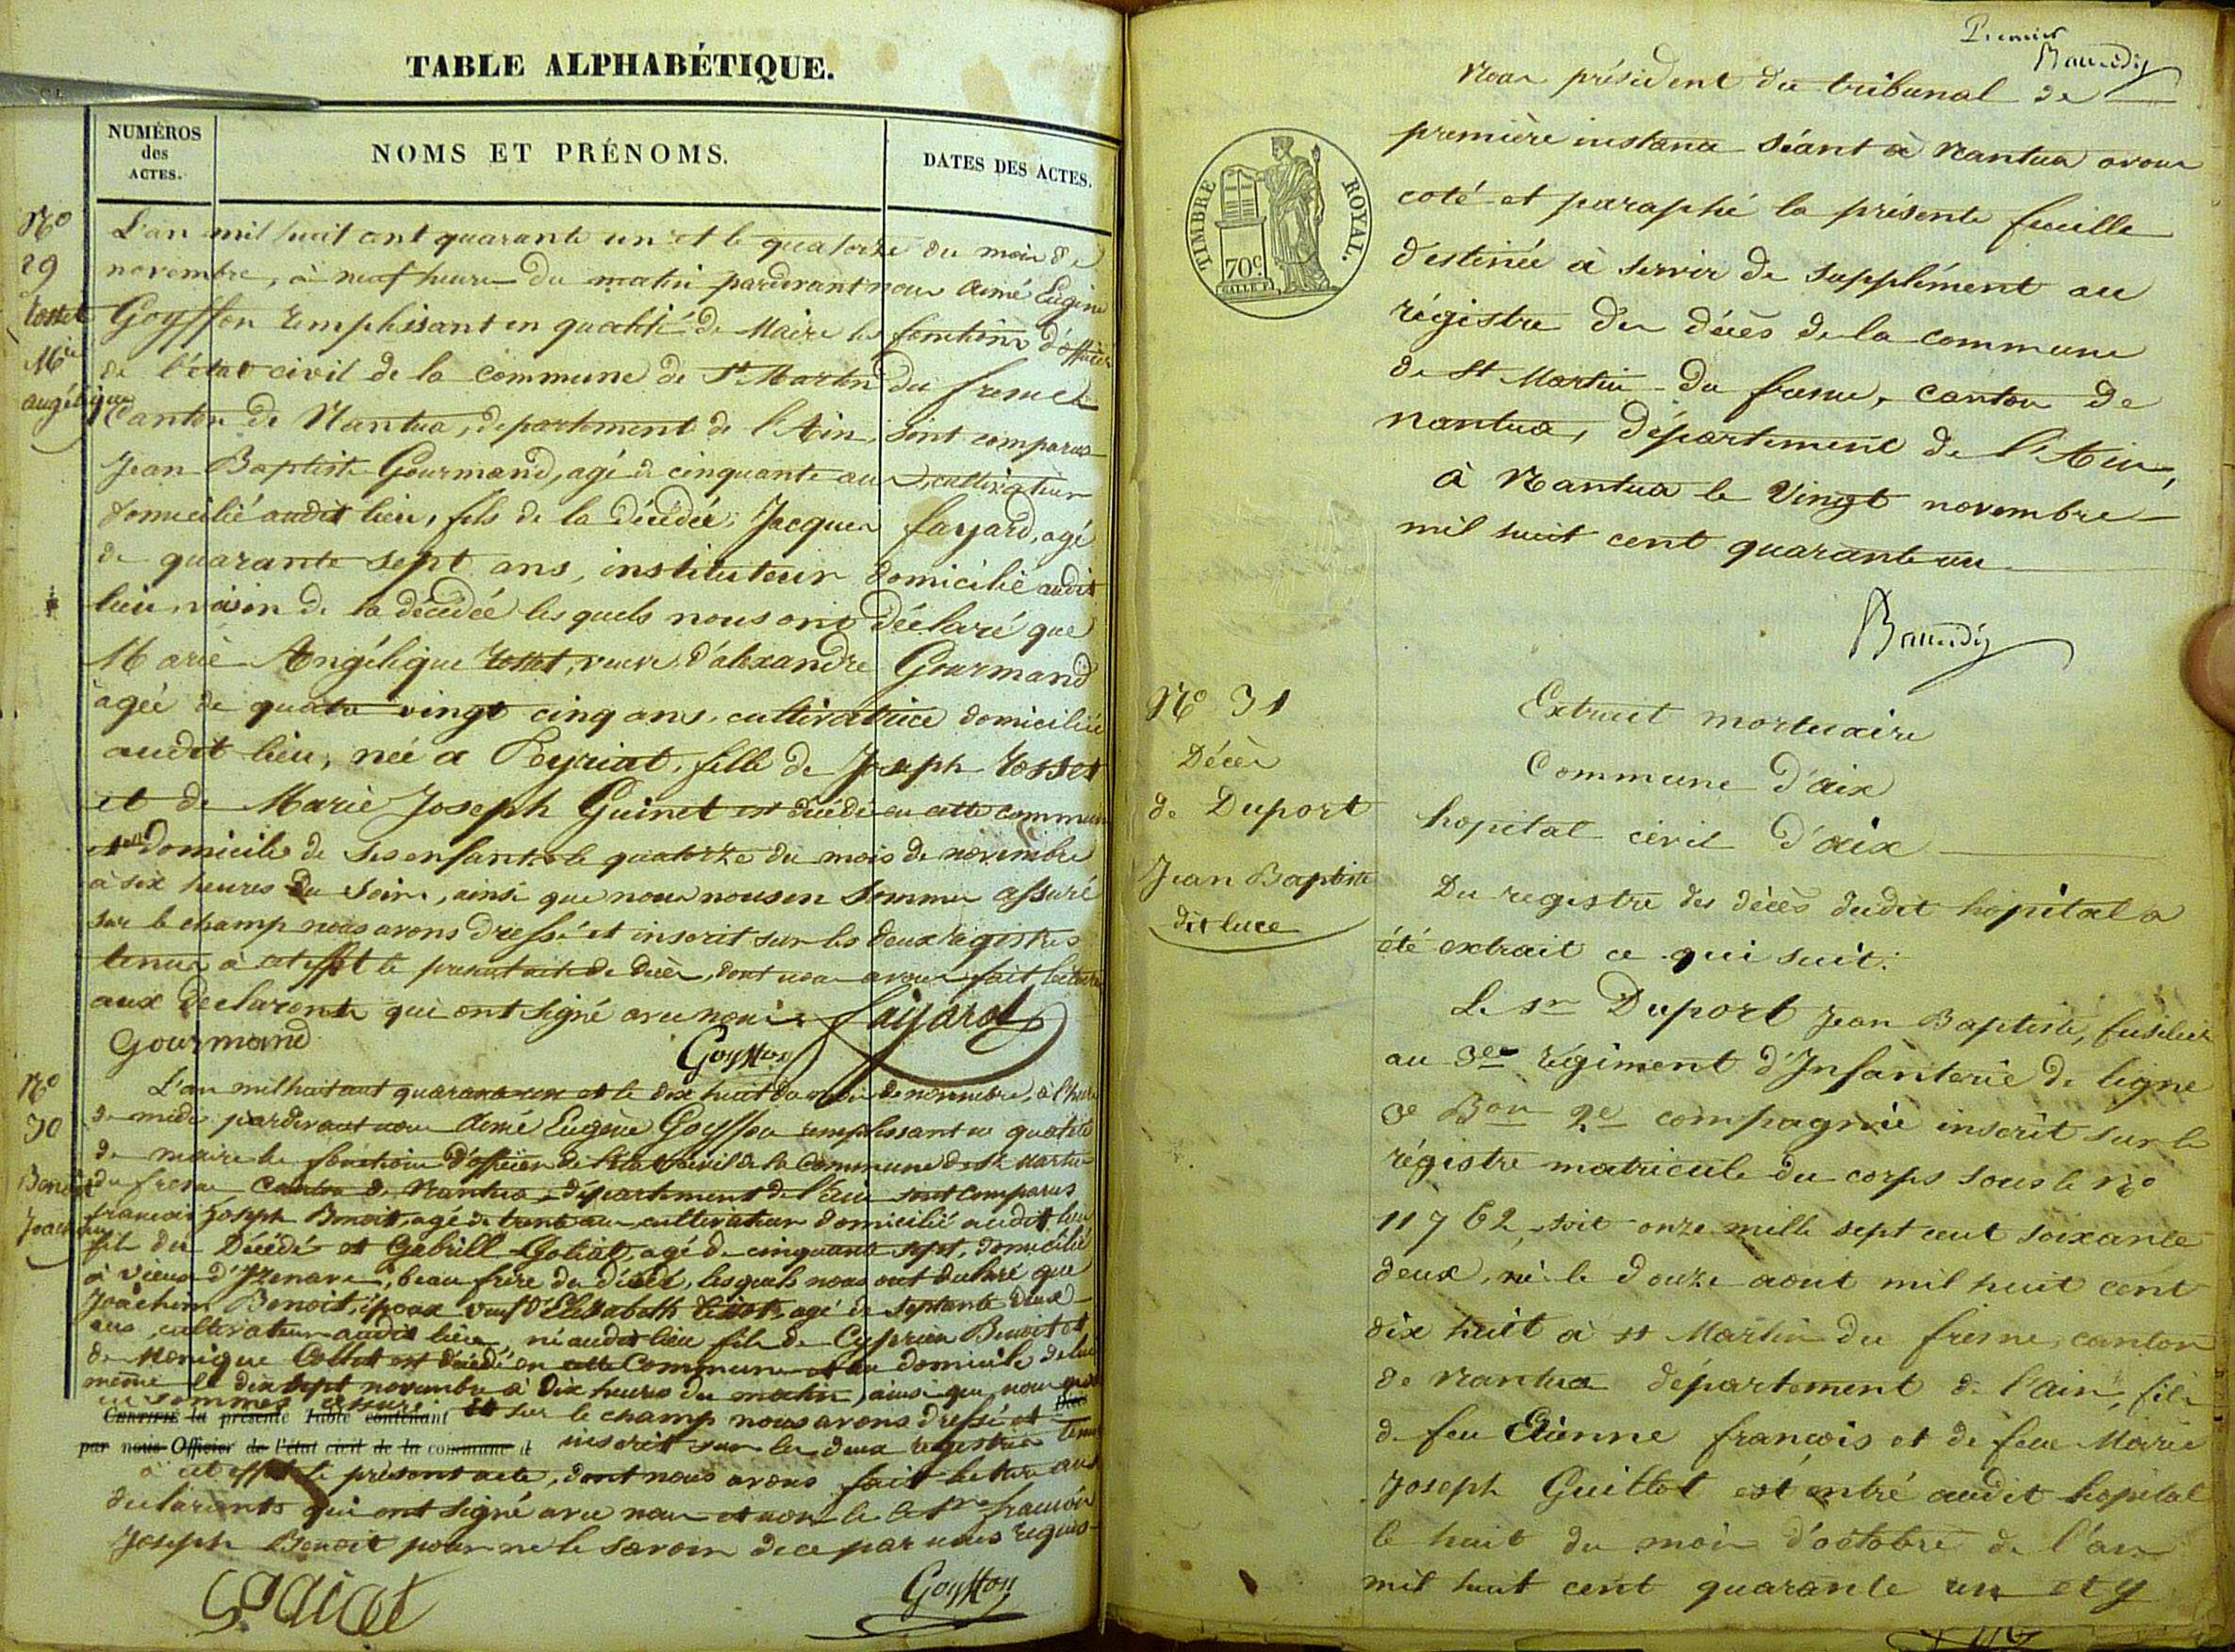 TABLE ALPHABÉTIQUE.
NUMÉROS
des
ACTES.
NOMS ET PRÉNOMS.
DATES DES ACTES.
No
29
Tosset
Mie
angélique
L'an mil huit cent quarante un et le quatorze du mois de
novembre, à neuf heures du matin pardevant nous Aimé Eugène
Goyffon remplissant en qualité de Maire les fonctions d'officier
de l'état civil de la commune de St Martin du fresne
Canton de Nantua, département de l'Ain, sont comparus
Jean Baptiste Gourmand, agé de cinquante ans, cultivateur
domicilié audit lieu, fils de la décédée; Jacques fayard, agé
de quarante sept ans, instituteur domicilié audit
lieu, voisin de la décédée lesquels nous ont déclaré que
Marie Angélique Tosset, veuve d'alexandre Gourmand
agée de quatre vingt cinq ans, cultivatrice domiciliée
audit lieu, née à Peyriat, fille de Joseph Tosset
et de Marie Joseph Guinet est décédé en cette commune
domicile de ses enfants le quatorze du mois de novembre
à six heures du soir, ainsi que nous nous en sommes assuré
sur le champ nous avons dressé et inscrit sur les deux registres
tenus à cet effet le présent acte de décès, dont nous avons fait lecture
aux declarants qui ont signé avec nous. fayard
Gourmand
Goyffon
No
30
Benoit
Joachim
L'an mil huit cent quarante un et le dix huit du mois de novembre, à l'heure
de midi pardevant nous Aimé Eugène Goyffon remplissant en qualité
de maire les fonctions d'officier de l'état civil de la Commune de St Martin
du fresne canton de Nantua, département de l'ain sont comparus
francois Joseph Benoit, agé de trente ans cultivateur domicilié audit lieu
fils du Décédé et Gabriel Goliat, agé de cinquante sept, domicilié
à vieux d'Izenave, beau frère du décédé, lesquels nous ont déclaré que
Joachim Benoit, époux veuf d'Elisabeth agé de septante deux
ans, cultivateur audit lieu, né audit lieu fils de Cyprien Benoit et
de Monique Collet est décédé en cette Commune et au domicile de lui
même le dix sept novembre à dix heures du matin, ainsi que nous nous
en sommes assuré. Et sur le champ nous avons dressé et
CERTIFIÉ la présente Table contenant
par nous Officier de l'état civil de la commune d
inscrit sur les deux registres tenus
à cet effet le présent acte, dont nous avons fait lecture aux
declarants qui ont signé avec nous et non le sr francois
Joseph Benoit pour ne le savoir de ce par nous requis
Goyffon
Premier
Baundy
Nous président du tribunal de
première instance séant à Nantua avons
coté et paraphé la présente feuille
destinée à servir de supplément au
régistre des décès de la commune
de St Martin du fresne, canton de
nantua, département de l'Ain,
à Nantua le Vingt novembre
mil huit cent quarante un
TIMBRE ROYAL.
70c
No 31
Décès
de Duport
Jean Baptiste
dit luce
Extrait mortuaire
Commune d'aix
hopital civil d'aix
Du registre des décès dudit hôpital a
été extrait ce qui suit:
Le sr Duport Jean Baptiste, fusilier
au 3e régiment d'Infanterie de ligne
3e Bon 2e compagnie inscrit sur le
régistre matricule du corps sous le No
11762, soit onze mille sept cent soixante
deux, né le douze aout mil huit cent
dix huit à st Martin du fresne, canton
de Nantua département de l'ain, fils
de feu Etienne francois et de feue Marie
Joseph Guillot est entré audit hopital
le huit du mois d'octobre de l'an
mil huit cent quarante un et y